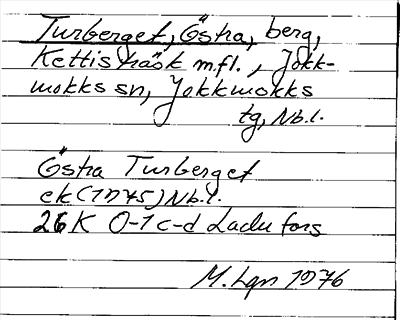 Turberget, Östra, berg,
Kettisträsk m.fl., Jokk-
mokks sn, Jokkmokks
tg, Nb.l.
Östra Turberget
ek (1945) Nb.l.
26K 0-1 c-d Ladufors
M. Lgn 1976